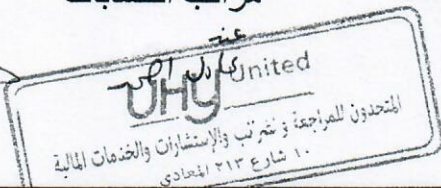 مراقب الحسابات
عنه
UHY United
المتحدون للمراجعة و الضرائب والإستشارات والخدمات المالية
١٠ شارع ٢١٣ المعادي